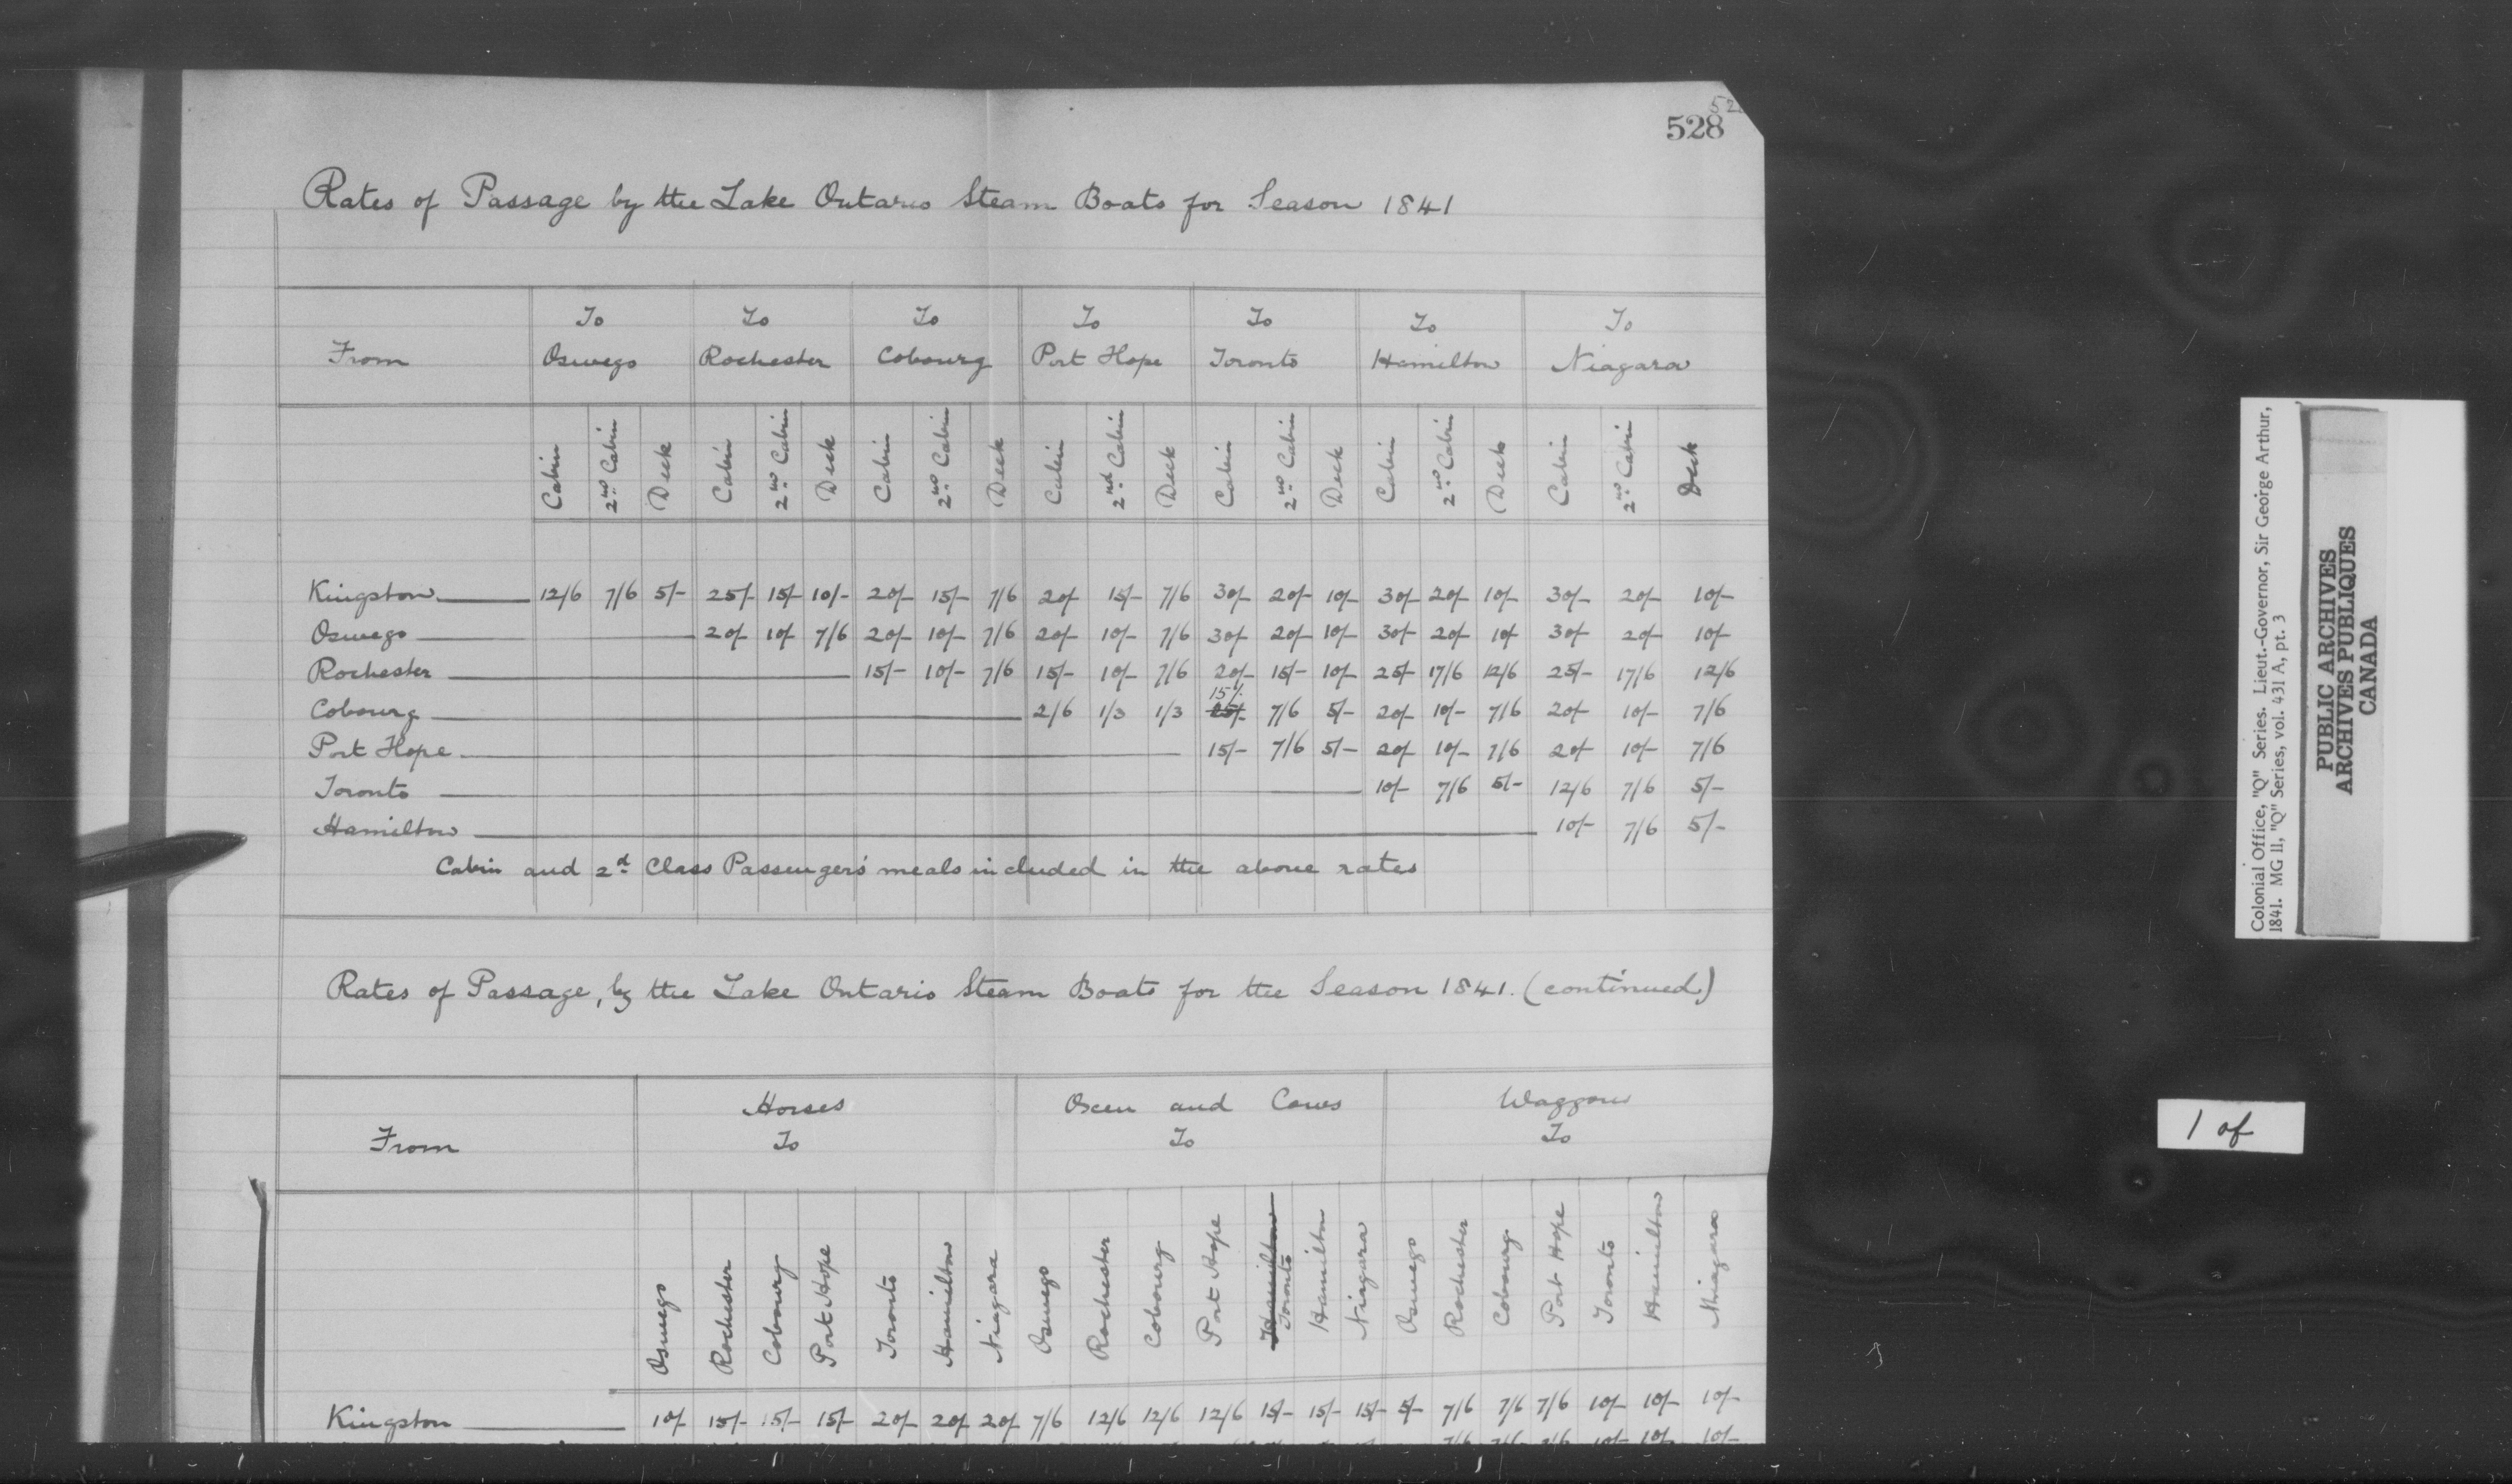 528
Rates of Passage by the Lake Ontario Steam Boats for Season 1841
From To Oswego To Rochester To Cobourg To Port Hope To Toronto To Hamilton To Niagara
Cabin 2nd Cabin Deck Cabin 2nd Cabin Deck Cabin 2nd Cabin Deck Cabin 2nd Cabin Deck Cabin 2nd Cabin Deck Cabin 2nd Cabin Deck Cabin 2nd Cabin Deck
Kingston 12/6 7/6 5/- 25/- 15/- 10/- 20/- 15/- 7/6 20/- 15/- 7/6 30/- 20/- 10/- 30/- 20/- 10/- 30/- 20/- 10/-
Oswego 20/- 10/- 7/6 20/- 10/- 7/6 20/- 10/- 7/6 30/- 20/- 10/- 30/- 20/- 10/- 30/- 20/- 10/-
Rochester 15/- 10/- 7/6 15/- 10/- 7/6 20/- 15/- 10/- 25/- 17/6 12/6 25/- 17/6 12/6
Cobourg 2/6 1/3 1/3 15/- 7/6 5/- 20/- 10/- 7/6 20/- 10/- 7/6
Port Hope 15/- 7/6 5/- 20/- 10/- 7/6 20/- 10/- 7/6
Toronto 10/- 7/6 5/- 12/6 7/6 5/-
Hamilton 10/- 7/6 5/-
Cabin and 2d Class Passengers' meals included in the above rates
Rates of Passage, by the Lake Ontario Steam Boats for the Season 1841. (continued)
From Horses To Oxen and Cows To Waggons To
Oswego Rochester Cobourg Port Hope Toronto Hamilton Niagara Oswego Rochester Cobourg Port Hope Hamilton Toronto Hamilton Niagara Oswego Rochester Cobourg Port Hope Toronto Hamilton Niagara
Kingston 10/- 15/- 15/- 15/- 20/- 20/- 20/- 7/6 12/6 12/6 12/6 15/- 15/- 15/- 5/- 7/6 7/6 7/6 10/- 10/- 10/-
Colonial Office, "Q" Series. Lieut.-Governor, Sir George Arthur,
1841. MG 11, "Q" Series, vol. 431 A, pt. 3
PUBLIC ARCHIVES
ARCHIVES PUBLIQUES
CANADA
1 of